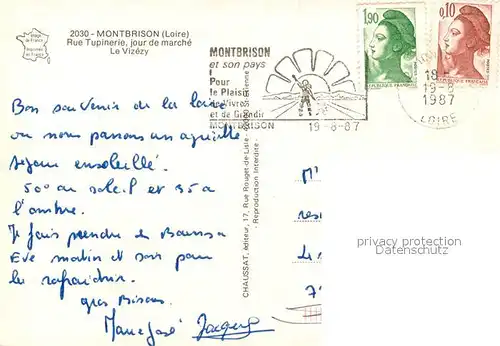 2030 - MONTBRISON (Loire)
Rue Tupinerie, jour de marché
Le Vizézy
Image de France
Imprimée en France
MONTBRISON
et son pays
Pour
le Plaisir
de Vivre
et de Grandir
MONTBRISON
19-8-87
1,90
0,10
18
19-8
1987
LOIRE
Bon souvenir de la Loire
où nous passons un agréable
séjour ensoleillé.
50° au soleil et 35 à
l'ombre.
Je fais prendre
Eve matin et soir pour
la rafraichir.
gros Bisous
Marie José Jacques
CHAUSSAT, éditeur, 17, Rue Rouget-de-Lisle
- Reproduction Interdite -
M
res
7
privacy protection
Datenschutz